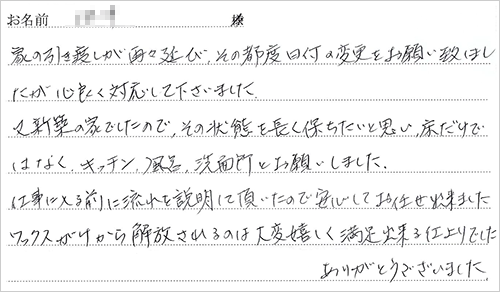 お名前 様
家の引き渡しが再々延び、その都度日付の変更をお願い致しまし
たが心良く対応して下さいました。
又新築の家でしたので、その状態を長く保ちたいと思い、床だけで
はなく、キッチン、風呂、洗面所とお願いしました。
仕事に入る前に流れを説明して頂いたので安心してお任せ出来ました
ワックスがけから解放されるのは大変嬉しく満足出来る仕上りでした
ありがとうございました。